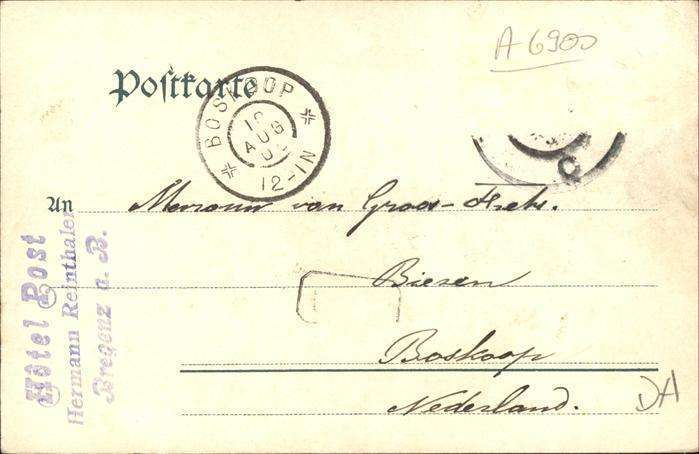 A 6900
Postkarte
BOSKOOP
AUG
12-1N
C
An Mevrouw van
Biezen
Boskoop
Nederland.
Hôtel Post
Hermann Reinthaler
Bregenz a. B.